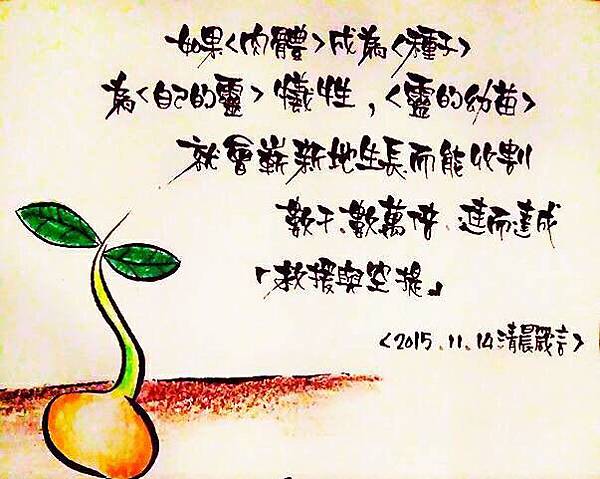 如果<肉體>成為<種子>
為<自己的靈>犧牲,<靈的幼苗>
就會嶄新地生長而能收割
數千、數萬倍、進而達成
「救援與空提」
<2015.11.14清晨箴言>